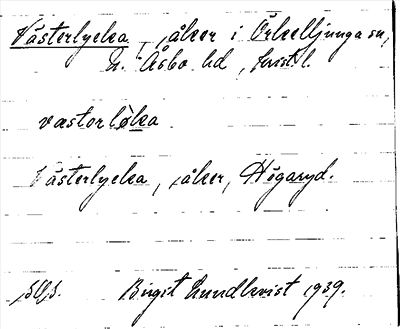 Västerlycka, åker i Örkelljunga sn,
N. Åsbo hd, Krist. l.
vastorlöka
Västerlycka, åker, Högaryd.
Birgit Lundkvist 1939.